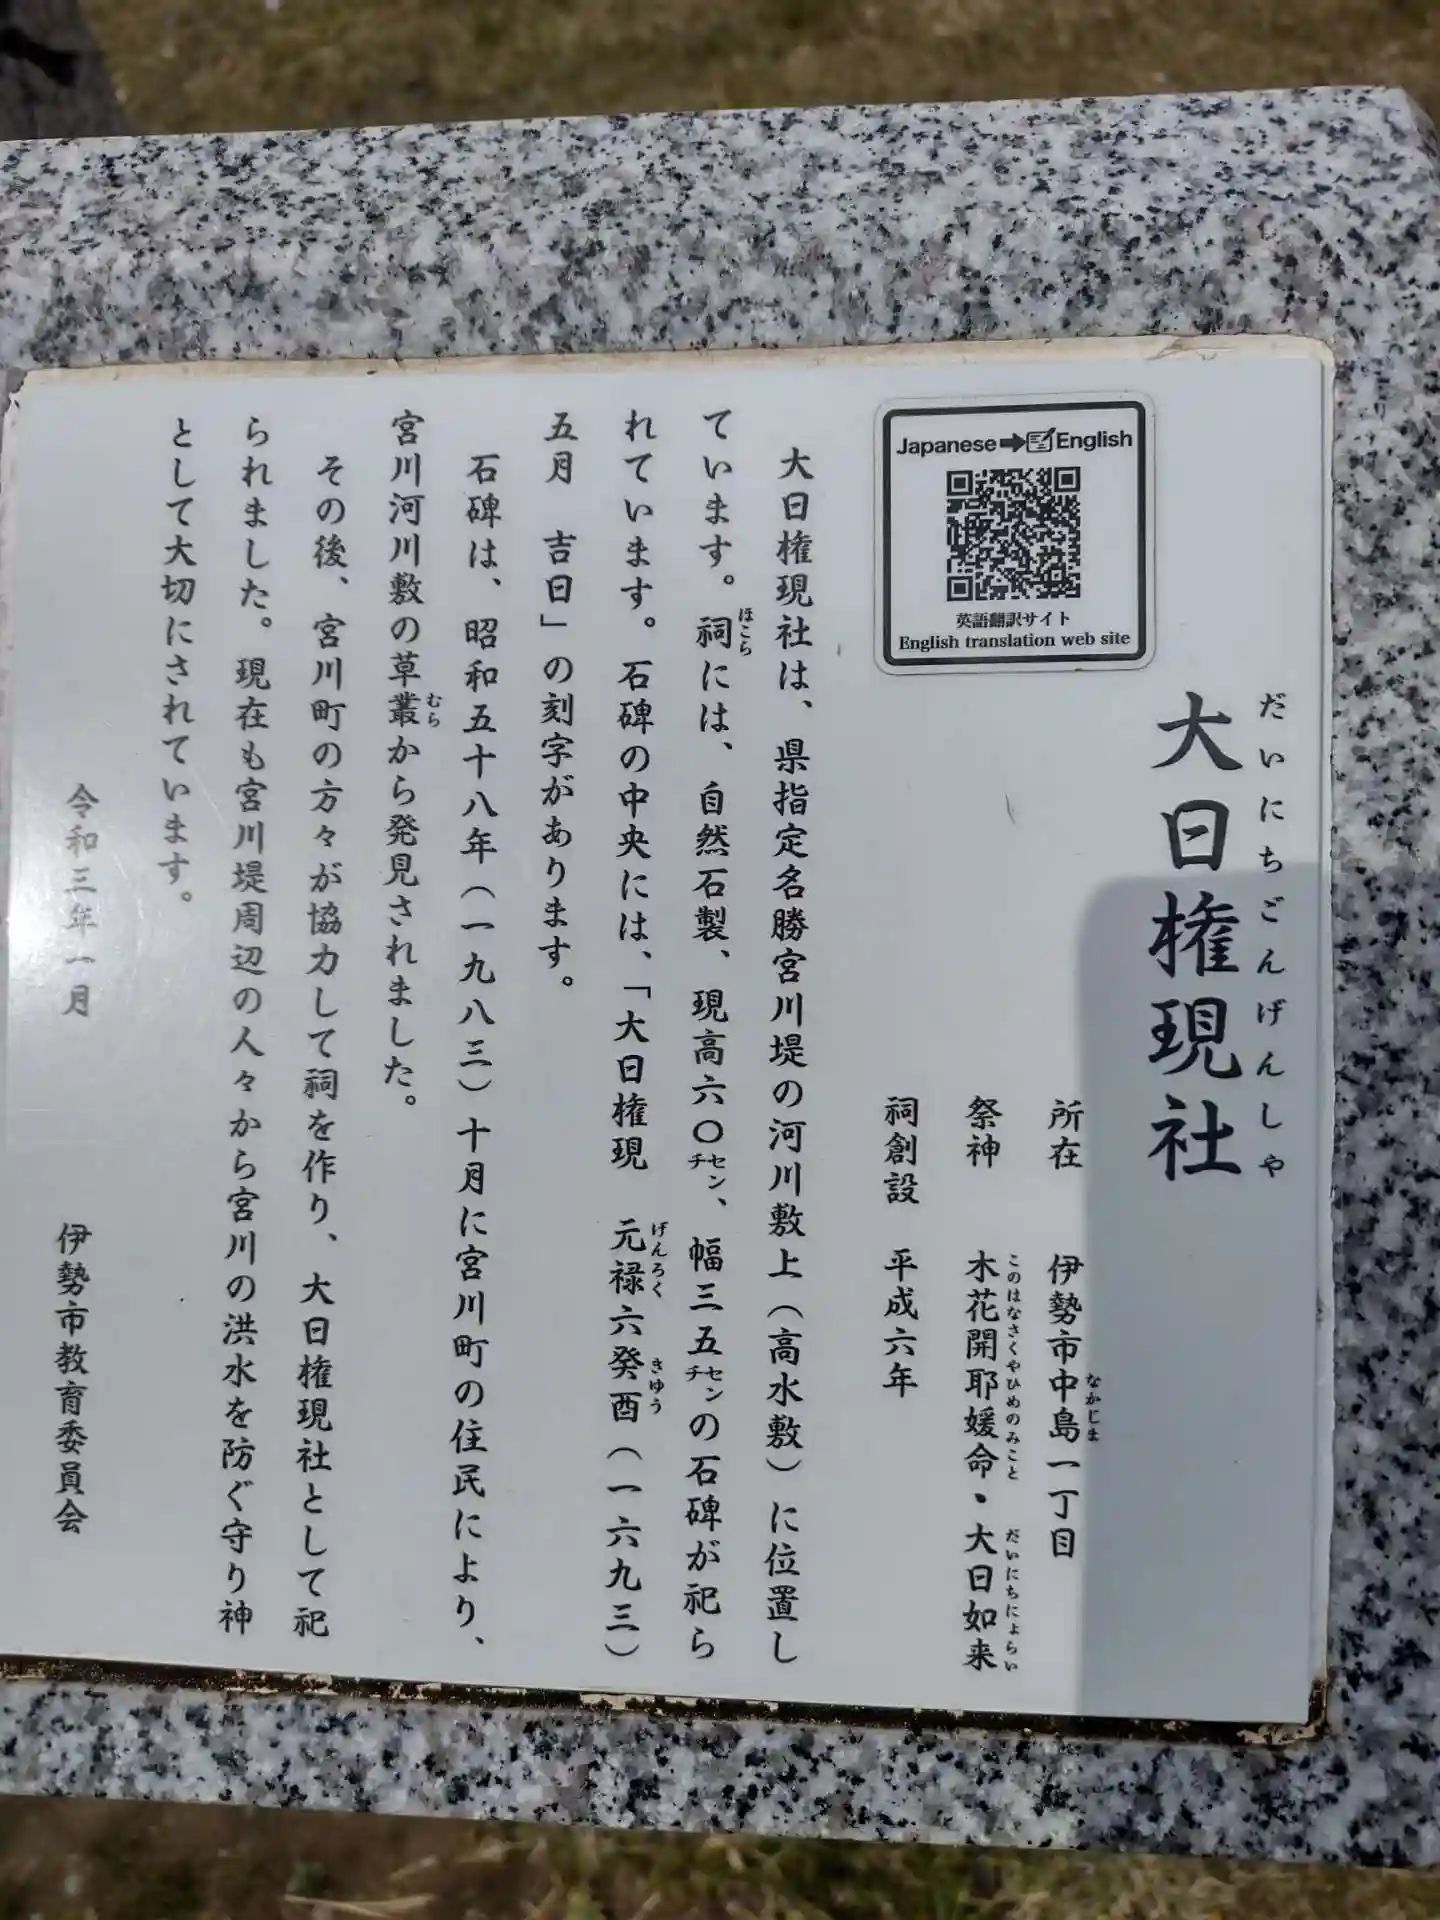 大日権現社
だいにちごんげんしゃ
Japanese➡English
英語翻訳サイト
English translation web site
所在　伊勢市中島一丁目
なかじま
祭神　木花開耶媛命・大日如来
このはなさくやひめのみこと　だいにちにょらい
祠創設　平成六年
大日権現社は、県指定名勝宮川堤の河川敷上（高水敷）に位置し
ています。祠には、自然石製、現高六〇センチ、幅三五センチの石碑が祀ら
ほこら
れています。石碑の中央には、「大日権現　元禄六癸酉（一六九三）
げんろく　きゆう
五月　吉日」の刻字があります。
石碑は、昭和五十八年（一九八三）十月に宮川町の住民により、
宮川河川敷の草叢から発見されました。
むら
その後、宮川町の方々が協力して祠を作り、大日権現社として祀
られました。現在も宮川堤周辺の人々から宮川の洪水を防ぐ守り神
として大切にされています。
令和三年一月　伊勢市教育委員会